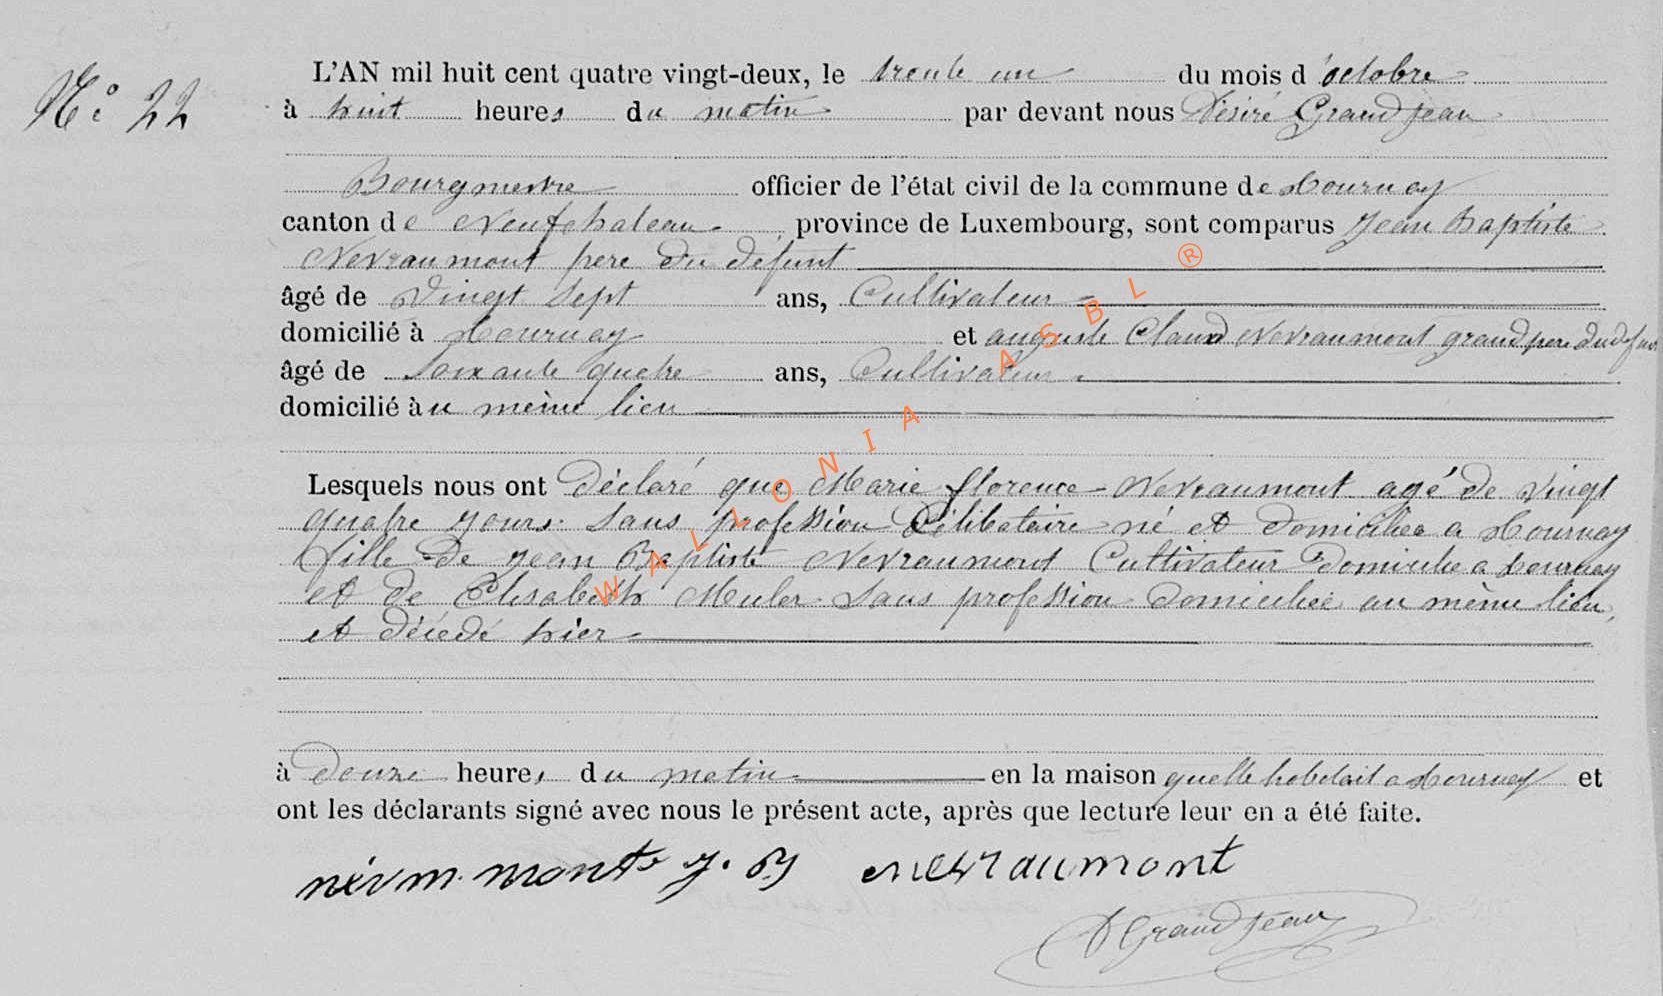 N° 22
L'AN mil huit cent quatre vingt-deux, le trente un du mois d'octobre
à huit heures du matin par devant nous Désiré Grandjean
Bourgmestre officier de l'état civil de la commune de Tournay
canton de Neufchateau province de Luxembourg, sont comparus Jean Baptiste
Nevraumont pere du défunt
âgé de Vingt Sept ans, Cultivateur
domicilié à Tournay et auguste Claud Nevraumont grand pere du defunt
âgé de Soixante quatre ans, Cultivateur
domicilié à u même lieu
Lesquels nous ont déclaré que Marie florence Nevraumont agé de Vingt
quatre jours Sans profession Célibataire né et domiciliée a Tournay
fille de jean Baptiste Nevraumont Cultivateur domicilié a tournay
et de Elisabeth Muler Sans profession domiciliée au même lieu,
et décedé hier
à douze heures du matin en la maison quelle habitait a tournay et
ont les déclarants signé avec nous le présent acte, après que lecture leur en a été faite.
j. B nevraumont
D Grandjean
WALLONIA ASBL ®